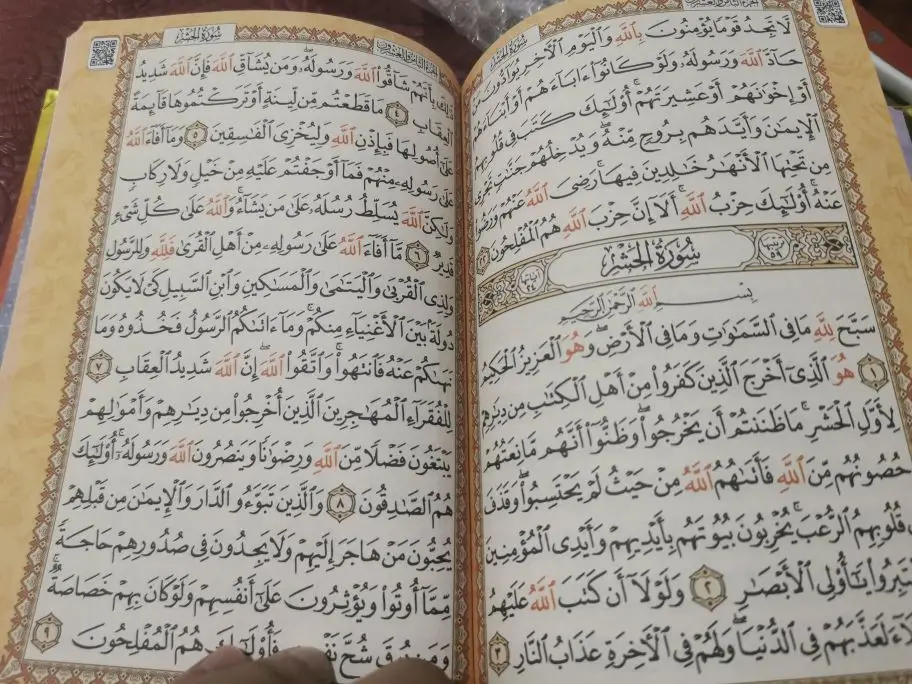 سُورَةُ الحَشْرِ
لَّا تَجِدُ قَوْمًا يُؤْمِنُونَ بِٱللَّهِ وَٱلْيَوْمِ ٱلْآخِرِ يُوَآدُّونَ مَنْ
حَآدَّ ٱللَّهَ وَرَسُولَهُۥ وَلَوْ كَانُوٓا۟ ءَابَآءَهُمْ أَوْ أَبْنَآءَهُمْ
أَوْ إِخْوَٰنَهُمْ أَوْ عَشِيرَتَهُمْ ۚ أُو۟لَٰٓئِكَ كَتَبَ فِى قُلُوبِهِمُ
ٱلْإِيمَٰنَ وَأَيَّدَهُم بِرُوحٍ مِّنْهُ ۖ وَيُدْخِلُهُمْ جَنَّٰتٍ تَجْرِى
مِن تَحْتِهَا ٱلْأَنْهَٰرُ خَٰلِدِينَ فِيهَا ۚ رَضِىَ ٱللَّهُ عَنْهُمْ وَرَضُوا۟
عَنْهُ ۚ أُو۟لَٰٓئِكَ حِزْبُ ٱللَّهِ ۚ أَلَآ إِنَّ حِزْبَ ٱللَّهِ هُمُ ٱلْمُفْلِحُونَ ٢٢
سُورَةُ الحَشْرِ
بِسْمِ ٱللَّهِ ٱلرَّحْمَٰنِ ٱلرَّحِيمِ
سَبَّحَ لِلَّهِ مَا فِى ٱلسَّمَٰوَٰتِ وَمَا فِى ٱلْأَرْضِ ۖ وَهُوَ ٱلْعَزِيزُ ٱلْحَكِيمُ
١ هُوَ ٱلَّذِىٓ أَخْرَجَ ٱلَّذِينَ كَفَرُوا۟ مِنْ أَهْلِ ٱلْكِتَٰبِ مِن دِيَٰرِهِمْ
لِأَوَّلِ ٱلْحَشْرِ ۚ مَا ظَنَنتُمْ أَن يَخْرُجُوا۟ ۖ وَظَنُّوٓا۟ أَنَّهُم مَّانِعَتُهُمْ
حُصُونُهُم مِّنَ ٱللَّهِ فَأَتَىٰهُمُ ٱللَّهُ مِنْ حَيْثُ لَمْ يَحْتَسِبُوا۟ ۖ وَقَذَفَ
فِى قُلُوبِهِمُ ٱلرُّعْبَ ۚ يُخْرِبُونَ بُيُوتَهُم بِأَيْدِيهِمْ وَأَيْدِى ٱلْمُؤْمِنِينَ
فَٱعْتَبِرُوا۟ يَٰٓأُو۟لِى ٱلْأَبْصَٰرِ ٢ وَلَوْلَآ أَن كَتَبَ ٱللَّهُ عَلَيْهِمُ
ٱلْجَلَآءَ لَعَذَّبَهُمْ فِى ٱلدُّنْيَا ۖ وَلَهُمْ فِى ٱلْآخِرَةِ عَذَابُ ٱلنَّارِ ٣
سُورَةُ الحَشْرِ
ذَٰلِكَ بِأَنَّهُمْ شَآقُّوا۟ ٱللَّهَ وَرَسُولَهُۥ ۖ وَمَن يُشَآقِّ ٱللَّهَ فَإِنَّ ٱللَّهَ شَدِيدُ
ٱلْعِقَابِ ٤ مَا قَطَعْتُم مِّن لِّينَةٍ أَوْ تَرَكْتُمُوهَا قَآئِمَةً
عَلَىٰٓ أُصُولِهَا فَبِإِذْنِ ٱللَّهِ وَلِيُخْزِىَ ٱلْفَٰسِقِينَ ٥ وَمَآ أَفَآءَ ٱللَّهُ
عَلَىٰ رَسُولِهِۦ مِنْهُمْ فَمَآ أَوْجَفْتُمْ عَلَيْهِ مِنْ خَيْلٍ وَلَا رِكَابٍ
وَلَٰكِنَّ ٱللَّهَ يُسَلِّطُ رُسُلَهُۥ عَلَىٰ مَن يَشَآءُ ۚ وَٱللَّهُ عَلَىٰ كُلِّ شَىْءٍ
قَدِيرٌ ٦ مَّآ أَفَآءَ ٱللَّهُ عَلَىٰ رَسُولِهِۦ مِنْ أَهْلِ ٱلْقُرَىٰ فَلِلَّهِ وَلِلرَّسُولِ
وَلِذِى ٱلْقُرْبَىٰ وَٱلْيَتَٰمَىٰ وَٱلْمَسَٰكِينِ وَٱبْنِ ٱلسَّبِيلِ كَىْ لَا يَكُونَ
دُولَةًۢ بَيْنَ ٱلْأَغْنِيَآءِ مِنكُمْ ۚ وَمَآ ءَاتَىٰكُمُ ٱلرَّسُولُ فَخُذُوهُ وَمَا
نَهَىٰكُمْ عَنْهُ فَٱنتَهُوا۟ ۚ وَٱتَّقُوا۟ ٱللَّهَ ۖ إِنَّ ٱللَّهَ شَدِيدُ ٱلْعِقَابِ ٧
لِلْفُقَرَآءِ ٱلْمُهَٰجِرِينَ ٱلَّذِينَ أُخْرِجُوا۟ مِن دِيَٰرِهِمْ وَأَمْوَٰلِهِمْ
يَبْتَغُونَ فَضْلًا مِّنَ ٱللَّهِ وَرِضْوَٰنًا وَيَنصُرُونَ ٱللَّهَ وَرَسُولَهُۥٓ ۚ أُو۟لَٰٓئِكَ
هُمُ ٱلصَّٰدِقُونَ ٨ وَٱلَّذِينَ تَبَوَّءُو ٱلدَّارَ وَٱلْإِيمَٰنَ مِن قَبْلِهِمْ
يُحِبُّونَ مَنْ هَاجَرَ إِلَيْهِمْ وَلَا يَجِدُونَ فِى صُدُورِهِمْ حَاجَةً
مِّمَّآ أُوتُوا۟ وَيُؤْثِرُونَ عَلَىٰٓ أَنفُسِهِمْ وَلَوْ كَانَ بِهِمْ خَصَاصَةٌ ۚ
وَمَن يُوقَ شُحَّ نَفْسِهِۦ فَأُو۟لَٰٓئِكَ هُمُ ٱلْمُفْلِحُونَ ٩